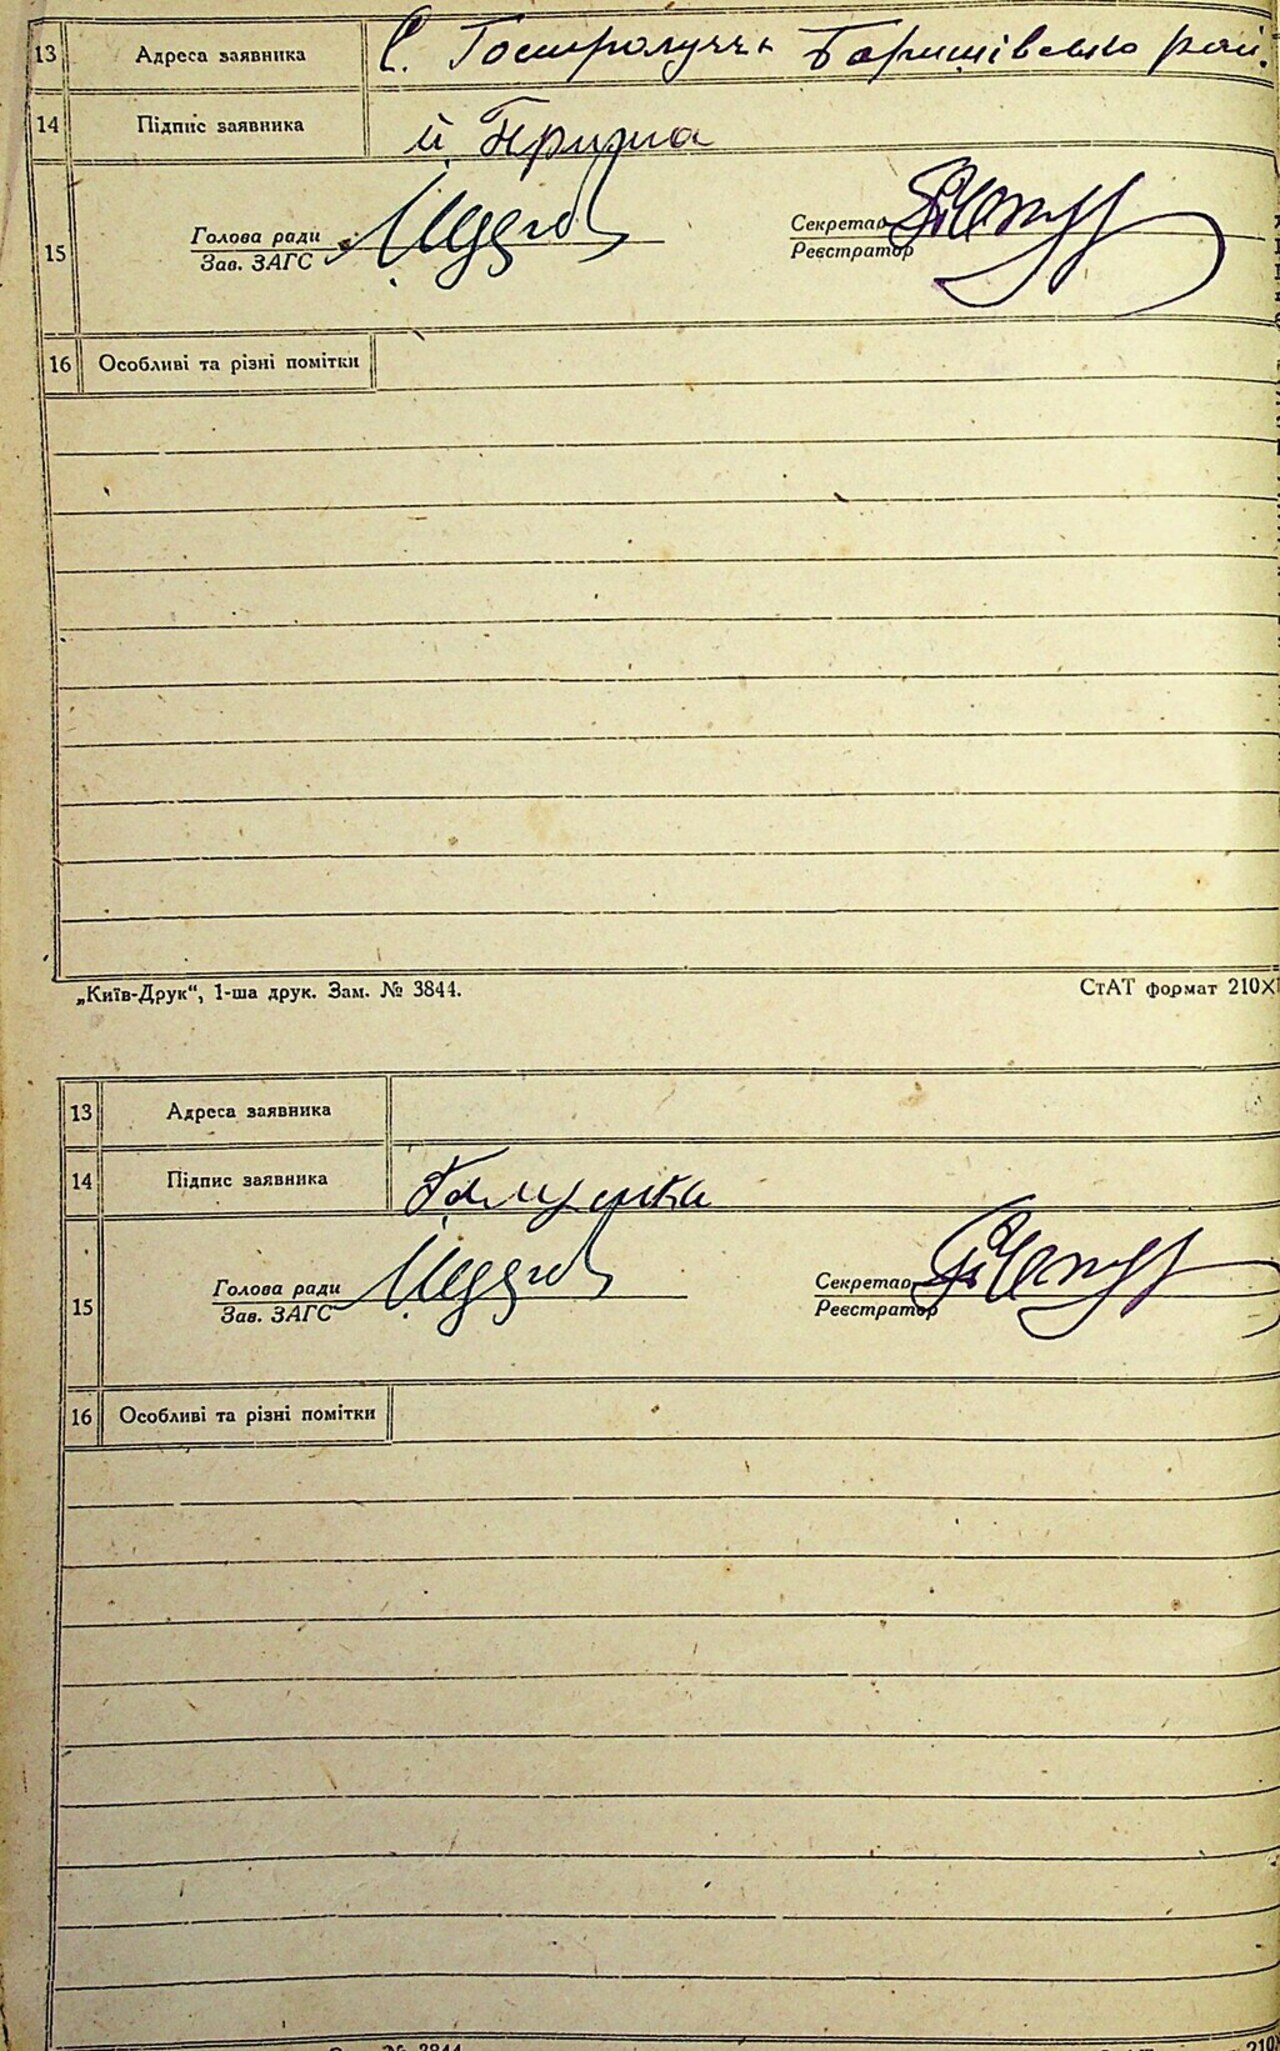 13 Адреса заявника С. Гостролуччя Баришівсько рай.
14 Підпис заявника
15 Голова ради Секретар
Зав. ЗАГС Реєстратор
16 Особливі та різні помітки
„Київ-Друк“, 1-ша друк. Зам. № 3844. СтАТ формат 210X
13 Адреса заявника
14 Підпис заявника
15 Голова ради Секретар
Зав. ЗАГС Реєстратор
16 Особливі та різні помітки
№ 3844